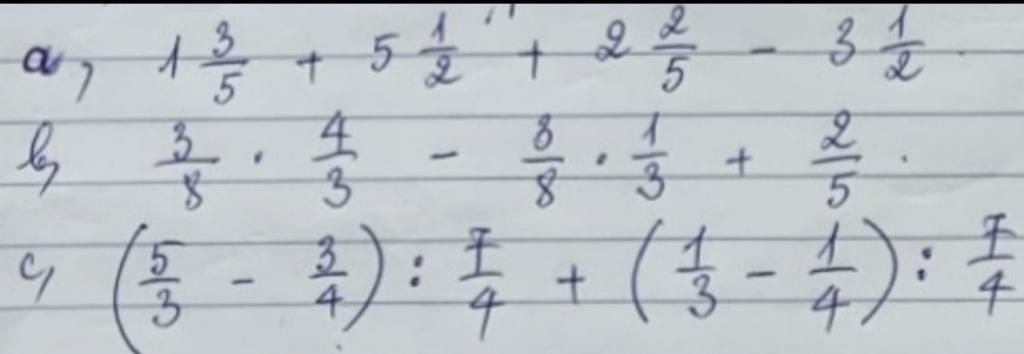 a, 1 3/5 + 5 1/2 + 2 2/5 - 3 1/2
b, 3/8 . 4/3 - 3/8 . 1/3 + 2/5 .
c, (5/3 - 3/4) : 7/4 + (1/3 - 1/4) : 7/4